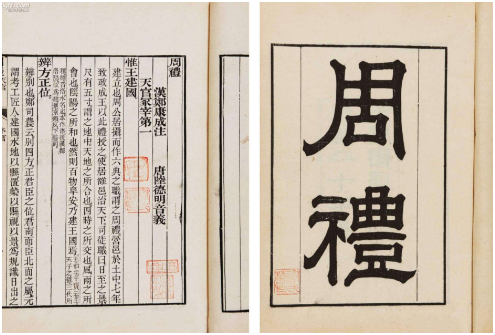 周禮
周禮
漢鄭康成注
唐陸德明音義
天官冢宰第一
惟王建國
建立也周公居攝而作六典之職謂之周禮營邑於土中七年
致政成王以此禮授之使居雒邑治天下司徒職曰日至之景
尺有五寸謂之地中天地之所合也四時之所交也風雨之所
會也陰陽之所和也然則百物阜安乃建王國焉
辨方正位
辨別也鄭司農云別四方正君臣之位君南面臣北面之屬元
謂考工匠人建國水地以縣置槷以縣視以景為規識日出之